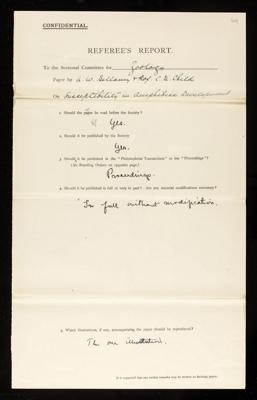 CONFIDENTIAL.
REFEREE'S REPORT.
To the Sectional Committee for Zoology
Paper by A. W. Bellamy & C. M. Child
On Susceptibility in Amphibian Development
1. Should the paper be read before the Society?
Yes.
2. Should it be published by the Society
Yes.
3. Should it be published in the "Philosophical Transactions" or the "Proceedings"?
(See Standing Orders on opposite page.)
Proceedings.
4. Should it be published in full or only in part? Are any material modifications necessary?
In full without modification.
5. Which illustrations, if any, accompanying the paper should be reproduced?
The one illustration.
It is requested that any further remarks may be written on foolscap paper.